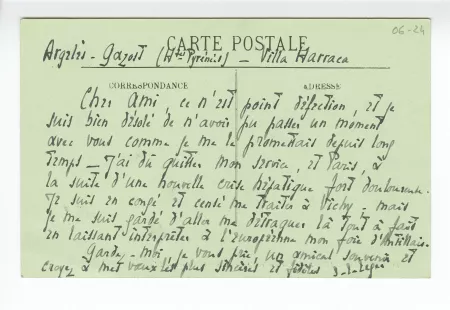 06-24
CARTE POSTALE
Argelès-Gazost (Htes Pyrénées) – Villa Harraca
CORRESPONDANCE
ADRESSE
Cher Ami, ce n'est point défection, et je
suis bien désolé de n'avoir pu passer un moment
avec vous comme je me le promettais depuis long
temps – J'ai dû quitter mon service, et Paris, à
la suite d'une nouvelle crise hépatique fort douloureuse.
Je suis en congé et censé me traiter à Vichy, mais
je me suis gardé d'aller me détraquer là tout à fait
en laissant interpréter à l'européenne mon foie d'Antillais.
Gardez-moi, je vous prie, un amical souvenir et
croyez à mes vœux les plus sincères et